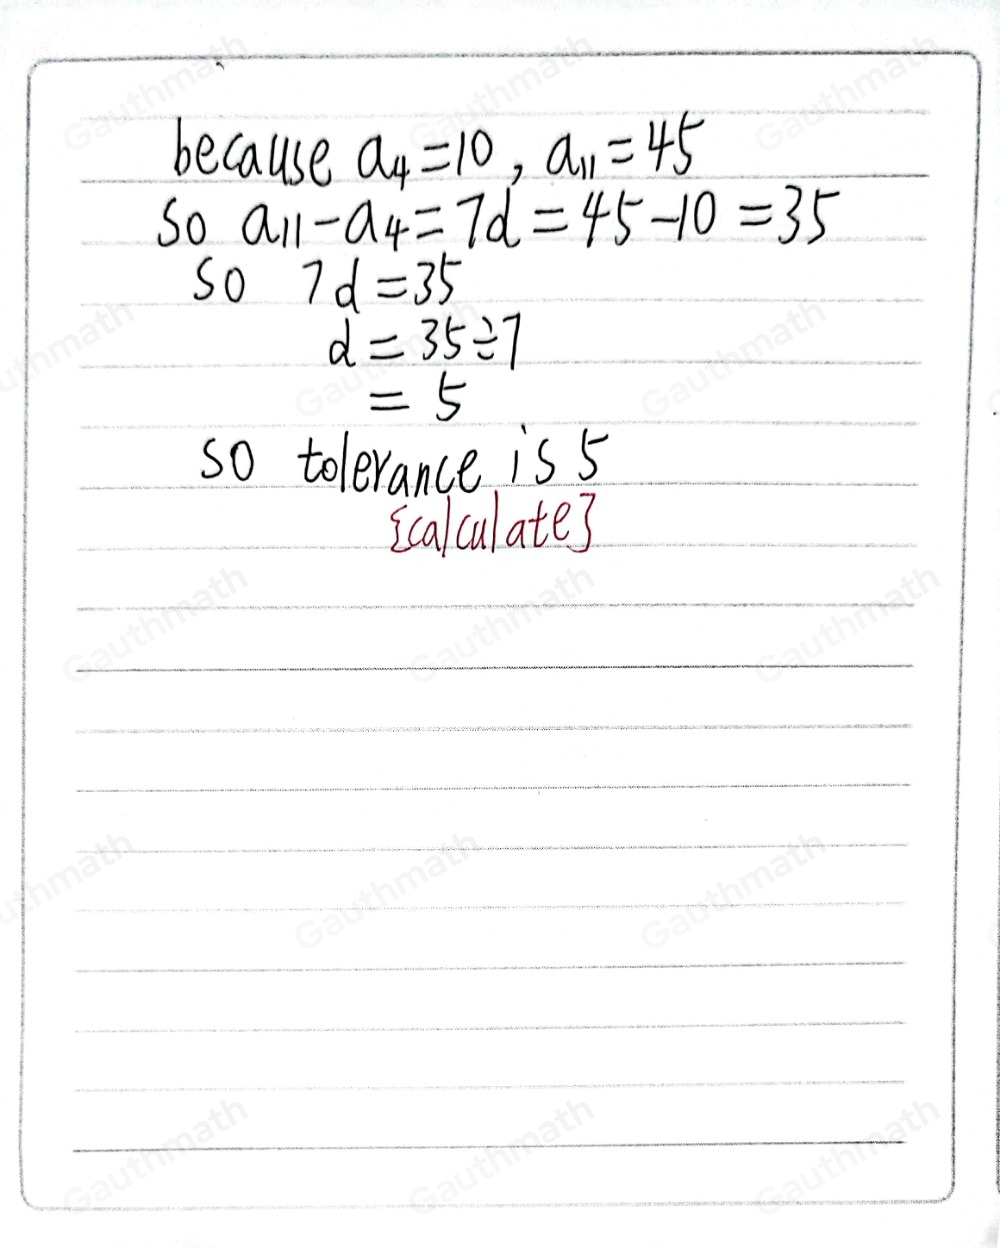 because a₄=10, a₁₁=45
so a₁₁-a₄=7d=45-10=35
so 7d=35
d=35÷7
=5
so tolerance is 5
{calculate}